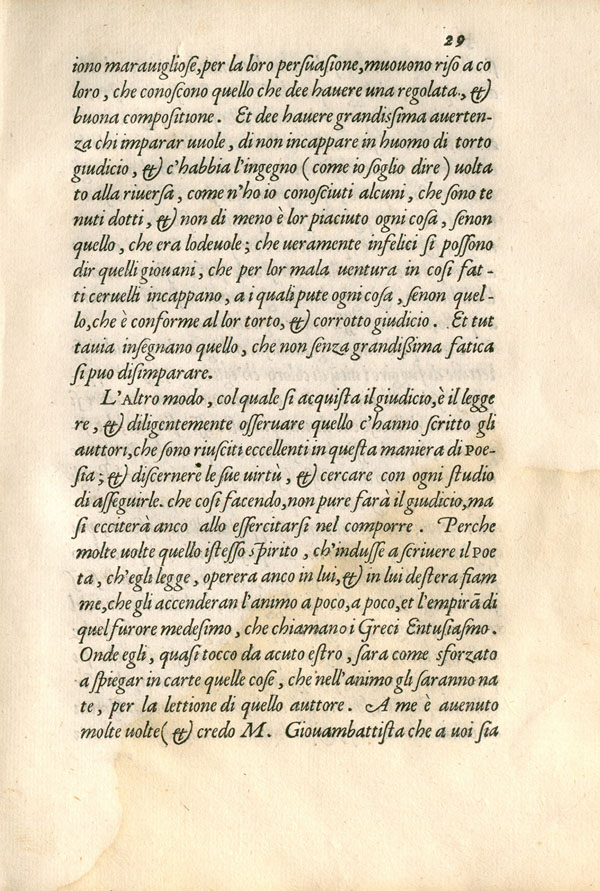 29
iono marauigliose, per la loro persuasione, muouono riso a co
loro, che conoscono quello che dee hauere una regolata, &
buona compositione. Et dee hauere grandissima auerten-
za chi imparar uuole, di non incappare in huomo di torto
giudicio, & c'habbia l'ingegno (come io soglio dire) uolta
to alla riuersa, come n'ho io conosciuti alcuni, che sono te
nuti dotti, & non di meno è lor piaciuto ogni cosa, senon
quello, che era lodeuole; che ueramente infelici si possono
dir quelli giouani, che per lor mala uentura in cosi fat-
ti ceruelli incappano, a i quali pute ogni cosa, senon quel-
lo, che è conforme al lor torto, & corrotto giudicio. Et tut
tauia insegnano quello, che non senza grandissima fatica
si puo disimparare.
L'Altro modo, col quale si acquista il giudicio, è il legge
re, & diligentemente osseruare quello c'hanno scritto gli
auttori, che sono riusciti eccellenti in questa maniera di Poe-
sia; & discernere le sue virtù, & cercare con ogni studio
di asseguirle. che cosi facendo, non pure farà il giudicio, ma
si ecciterà anco allo essercitarsi nel comporre. Perche
molte uolte quello istesso spirito, ch'indusse a scriuere il Poe
ta, ch'egli legge, operera anco in lui, & in lui destera fiam
me, che gli accenderan l'animo a poco, a poco, et l'empirā di
quel furore medesimo, che chiamano i Greci Entusiasmo.
Onde egli, quasi tocco da acuto estro, sara come sforzato
a spiegar in carte quelle cose, che nell'animo gli saranno na
te, per la lettione di quello auttore. A me è auenuto
molte uolte (& credo M. Giouambattista che a uoi sia